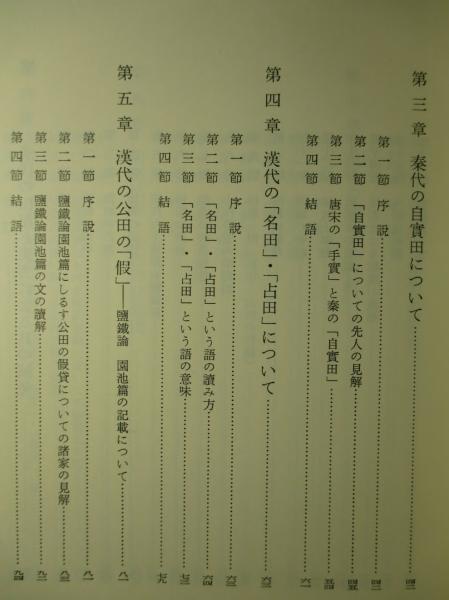 第三章 秦代の自實田について……四三
第一節 序說……四三
第二節 「自實田」についての先人の見解……四五
第三節 唐宋の「手實」と秦の「自實田」……五四
第四節 結語……六一
第四章 漢代の「名田」・「占田」について……六三
第一節 序說……六三
第二節 「名田」・「占田」という語の讀み方……六四
第三節 「名田」・「占田」という語の意味……七三
第四節 結語……七九
第五章 漢代の公田の「假」――鹽鐵論 園池篇の記載について……八一
第一節 序說……八一
第二節 鹽鐵論園池篇にしるす公田の假貸についての諸家の見解……八三
第三節 鹽鐵論園池篇の文の讀解……九二
第四節 結語……九四